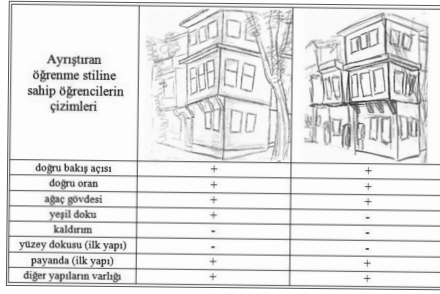 Ayrıştıran
öğrenme stiline
sahip öğrencilerin
çizimleri
doğru bakış açısı + +
doğru oran + +
ağaç gövdesi + +
yeşil doku + -
kaldırım - -
yüzey dokusu (ilk yapı) - -
payanda (ilk yapı) + +
diğer yapıların varlığı + +